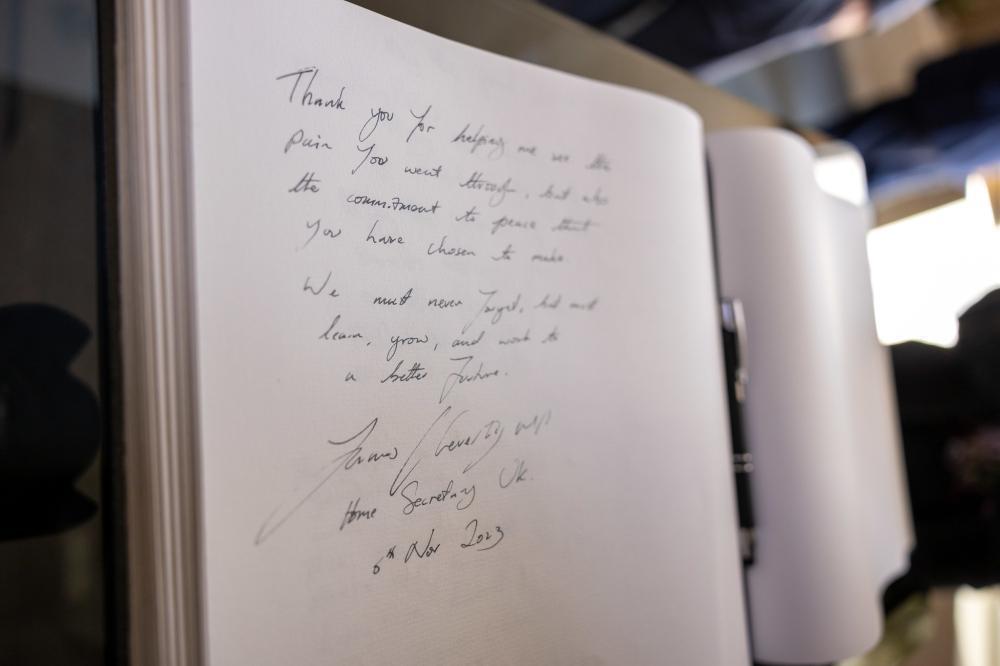 Thank you for helping me see the
pain you went through, but also
the commitment to peace that
you have chosen to make.
We must never forget, but must
learn, grow, and work to
a better future.
James Cleverly MP
Home Secretary UK.
6th Nov 2023